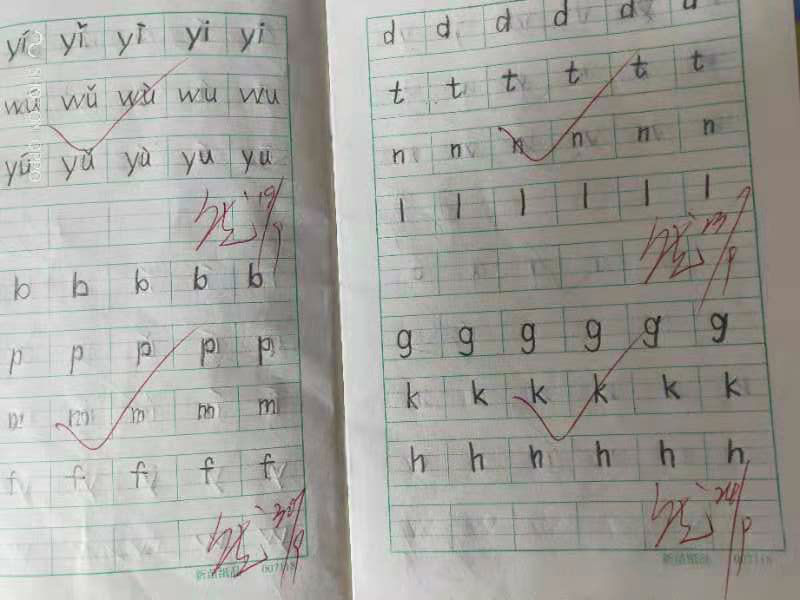 yí yǐ yī yi yi
wú wǔ wù wu wu
yú yǔ yù yu yu
b b b b b
p p p p p
m m m m m
f f f f f
d d d d d d
t t t t t t
n n n n n n
l l l l l l
g g g g g g
k k k k k k
h h h h h h